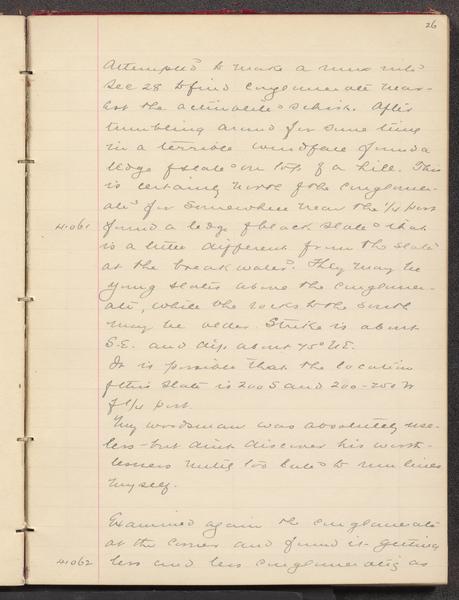 26
Attempted to make a run into
Sec 28 to find conglomerate near
but the actinolite schist. After
tumbling around for some time
in a terrible windfall found a
ledge of slate on top of a hill. This
is certainly north of the conglomer-
ate for somewhere near the 1/4 post
41061 found a ledge of black slate that
is a little different from the slate
at the breakwater. They may be
young slates above the conglomer-
ate, while the rocks to the south
may be older. Strike is about
S.E. and dip about 45° N.E.
It is possible that the location
of this slate is 200 S and 200-250 W
of 1/4 post.
My woodsman was absolutely use-
less - but didn't discover his worth-
lessness until too late to run lines
myself.
Examined again the conglomerate
at the corner and found it getting
41062 less and less conglomeratic as